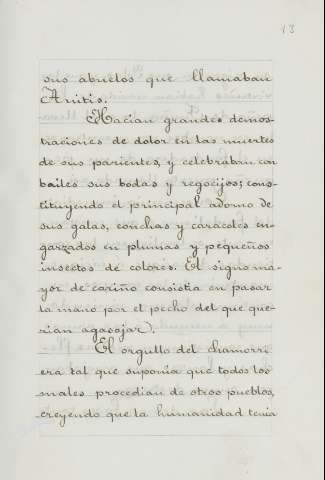 13
sus abuelos que llamaban
Anitis.
Hacian grandes demos-
traciones de dolor en las muertes
de sus parientes, y celebraban con
bailes sus bodas y regocijos; cons-
tituyendo el principal adorno de
sus galas, conchas y caracoles en-
garzados en plumas y pequeños
insectos de colores. El signo ma-
yor de cariño consistia en pasar
la mano por el pecho del que que-
rian agasajar).
El orgullo del chamorri
era tal que suponia que todos los
males procedian de otros pueblos,
creyendo que la humanidad tenia